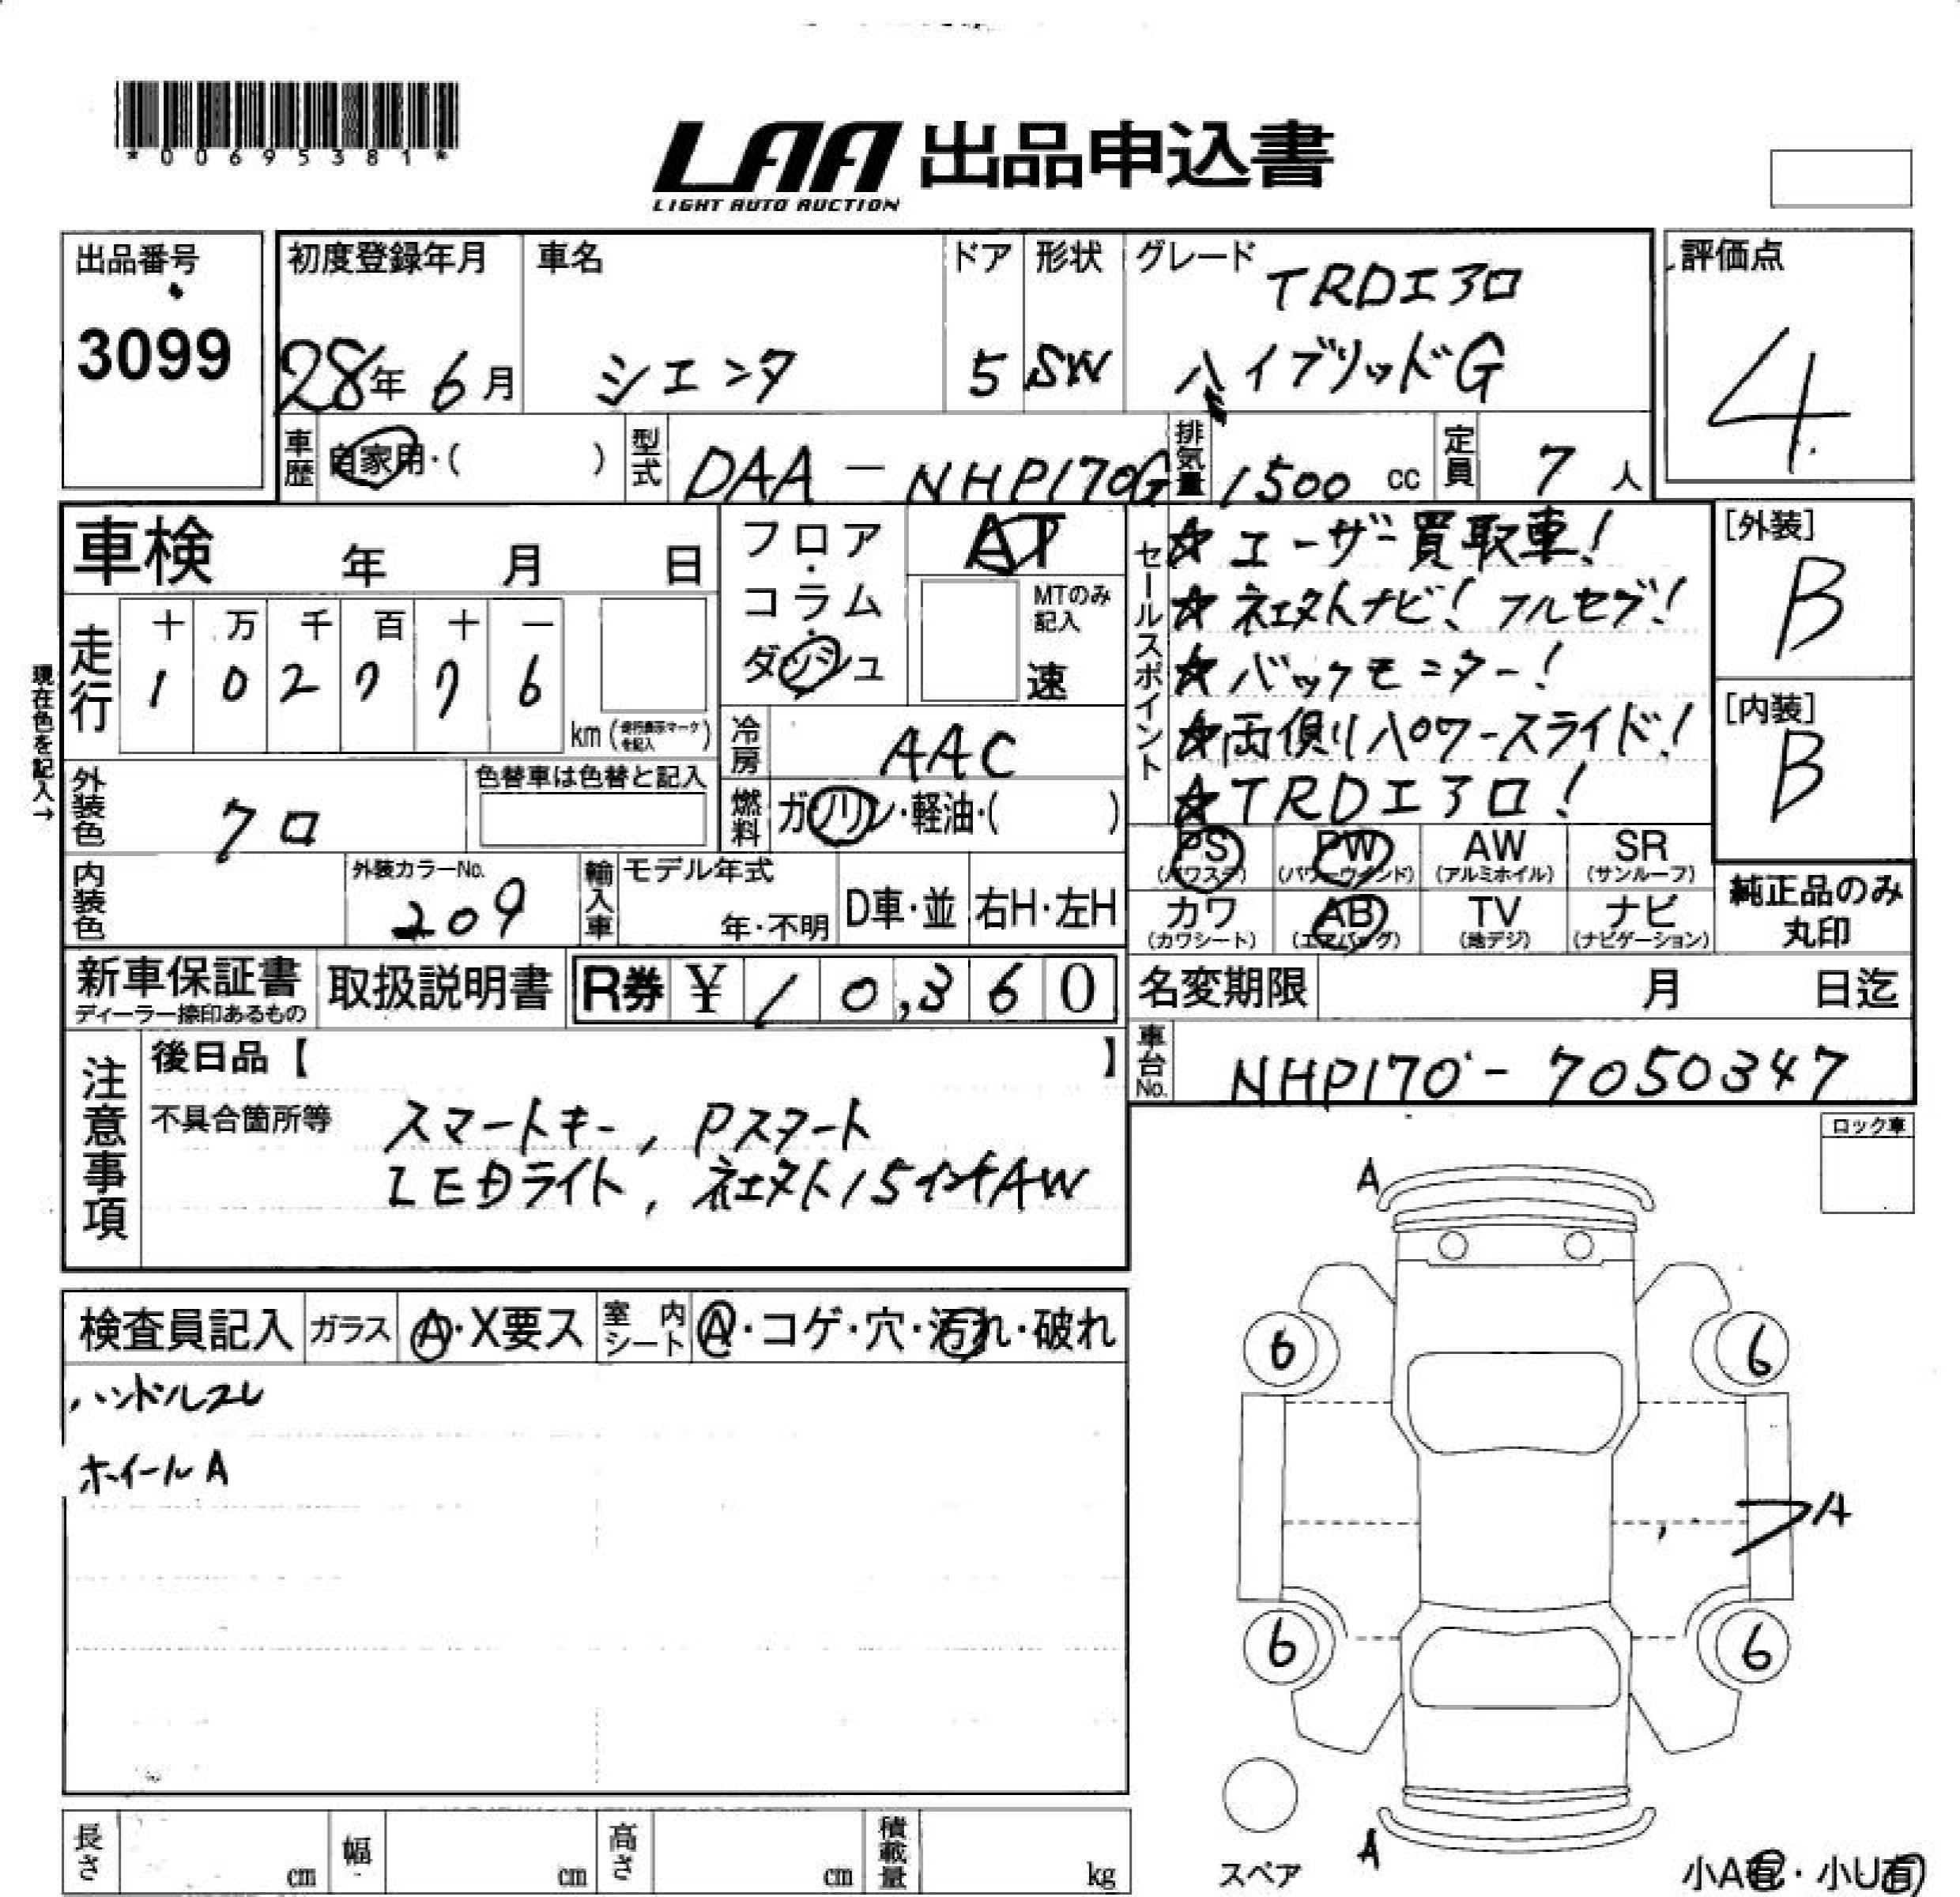 *00695381*
LAA 出品申込書
LIGHT AUTO AUCTION
出品番号
3099
初度登録年月
28年 6月
車名
シエンタ
ドア
5
形状
SW
グレード
TRDエアロ
ハイブリッドG
評価点
4
車歴
自家用・( )
型式
DAA-NHP170G
排気量
1500 cc
定員
7 人
車検 年 月 日
フロア・コラム・ダッシュ
AT
MTのみ記入
速
セールスポイント
☆ユーザー買取車!
☆社外ナビ!フルセグ!
☆バックモニター!
☆両側パワースライド!
☆TRDエアロ!
[外装]
B
[内装]
B
現在色を記入→
走行
十 万 千 百 十 一
1 0 2 7 7 6
km(走行表示マークを記入)
冷房
AAC
燃料
ガソリン・軽油・( )
外装色
クロ
色替車は色替と記入
内装色
外装カラーNo.
209
輸入車
モデル年式
年・不明
D車・並
右H・左H
PS (パワステ)
PW (パワーウインド)
AW (アルミホイル)
SR (サンルーフ)
カワ (カワシート)
AB (エアバッグ)
TV (地デジ)
ナビ (ナビゲーション)
純正品のみ丸印
新車保証書
ディーラー捺印あるもの
取扱説明書
R券 ¥ 10,360
名変期限 月 日迄
車台No.
NHP170-7050347
注意事項
後日品【 】
不具合箇所等
スマートキー, Pスタート
LEDライト, 社外15インチAW
ロック車
検査員記入
ガラス
A・X要ス
室内シート
A・コゲ・穴・汚れ・破れ
ハンドルスレ
ホイールA
A
6
6
A
6
6
A
スペア
小A有・小U有
長さ cm
幅 cm
高さ cm
積載量 kg